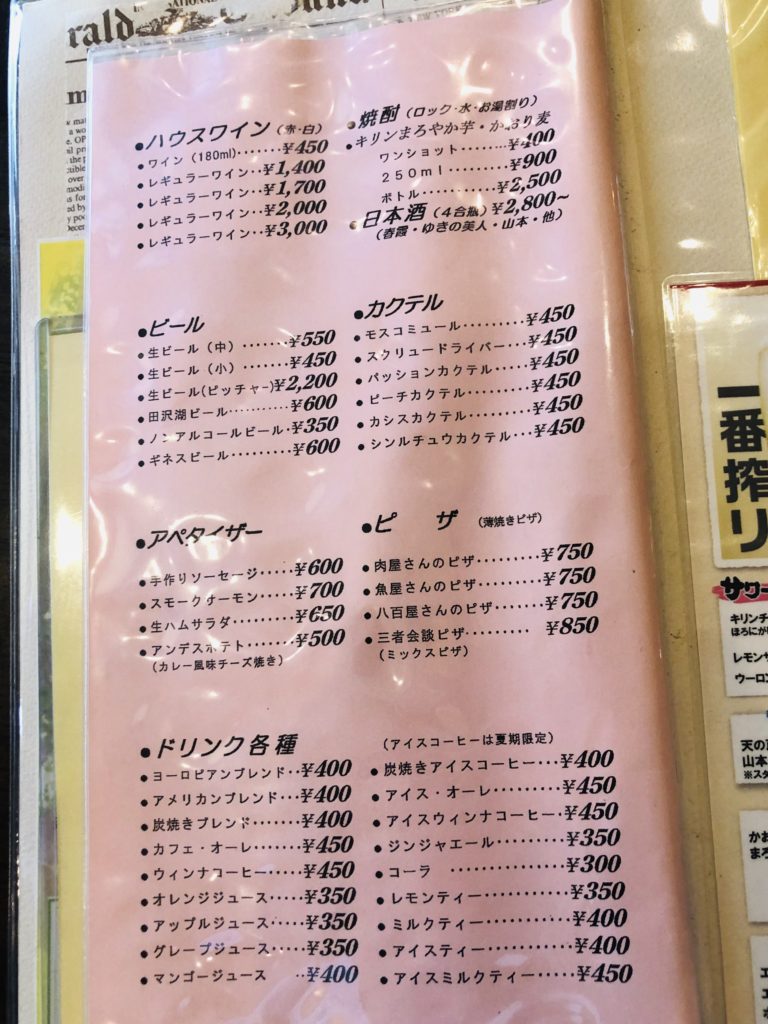 rald
●ハウスワイン(赤・白)
●ワイン(180ml)・・・・・・・¥450
●レギュラーワイン・・¥1,400
●レギュラーワイン・・¥1,700
●レギュラーワイン・・¥2,000
●レギュラーワイン・・¥3,000
●焼酎(ロック・水・お湯割り)
●キリンまろやか芋・かおり麦
ワンショット・・・・・・・・¥400
250ml・・・・・・・・・¥900
ボトル・・・・・・・・・・・¥2,500
●日本酒(4合瓶)¥2,800~
(春霞・ゆきの美人・山本・他)
●ビール
●生ビール(中)・・・・・・・¥550
●生ビール(小)・・・・・・・¥450
●生ビール(ピッチャー)¥2,200
●田沢湖ビール・・・・・・・・・・¥600
●ノンアルコールビール・¥350
●ギネスビール・・・・・・・・・¥600
●カクテル
●モスコミュール・・・・・・・・・¥450
●スクリュードライバー・・・¥450
●パッションカクテル・・・・・¥450
●ピーチカクテル・・・・・・・・・¥450
●カシスカクテル・・・・・・・・・¥450
●シンルチュウカクテル・・・¥450
●アペタイザー
●手作りソーセージ・・・・・¥600
●スモークサーモン・・・・・¥700
●生ハムサラダ・・・・・・・・・¥650
●アンデスポテト・・・・・・・¥500
(カレー風味チーズ焼き)
●ピザ (薄焼きピザ)
●肉屋さんのピザ・・・・・・・・¥750
●魚屋さんのピザ・・・・・・・・¥750
●八百屋さんのピザ・・・・・・¥750
●三者会談ピザ・・・・・・・・・ ¥850
(ミックスピザ)
●ドリンク各種
●ヨーロピアンブレンド・・¥400
●アメリカンブレンド・・・¥400
●炭焼きブレンド・・・・・・・¥400
●カフェ・オーレ・・・・・・・¥450
●ウィンナコーヒー・・・・・¥450
●オレンジジュース・・・・・¥350
●アップルジュース・・・・・¥350
●グレープジュース・・・・・¥350
●マンゴージュース ・・¥400
(アイスコーヒーは夏期限定)
●炭焼きアイスコーヒー・・・¥400
●アイス・オーレ・・・・・・・・・¥450
●アイスウィンナコーヒー・¥450
●ジンジャエール・・・・・・・・・¥350
●コーラ ・・・・・・・・・・・・¥300
●レモンティー・・・・・・・・・・¥350
●ミルクティー・・・・・・・・・・¥400
●アイスティー・・・・・・・・・・¥400
●アイスミルクティー・・・・・¥450
一番搾り
サワー
キリンチ
ほろにが
レモンサ
ウーロン
天の
山本
※スタ
かお
まろ